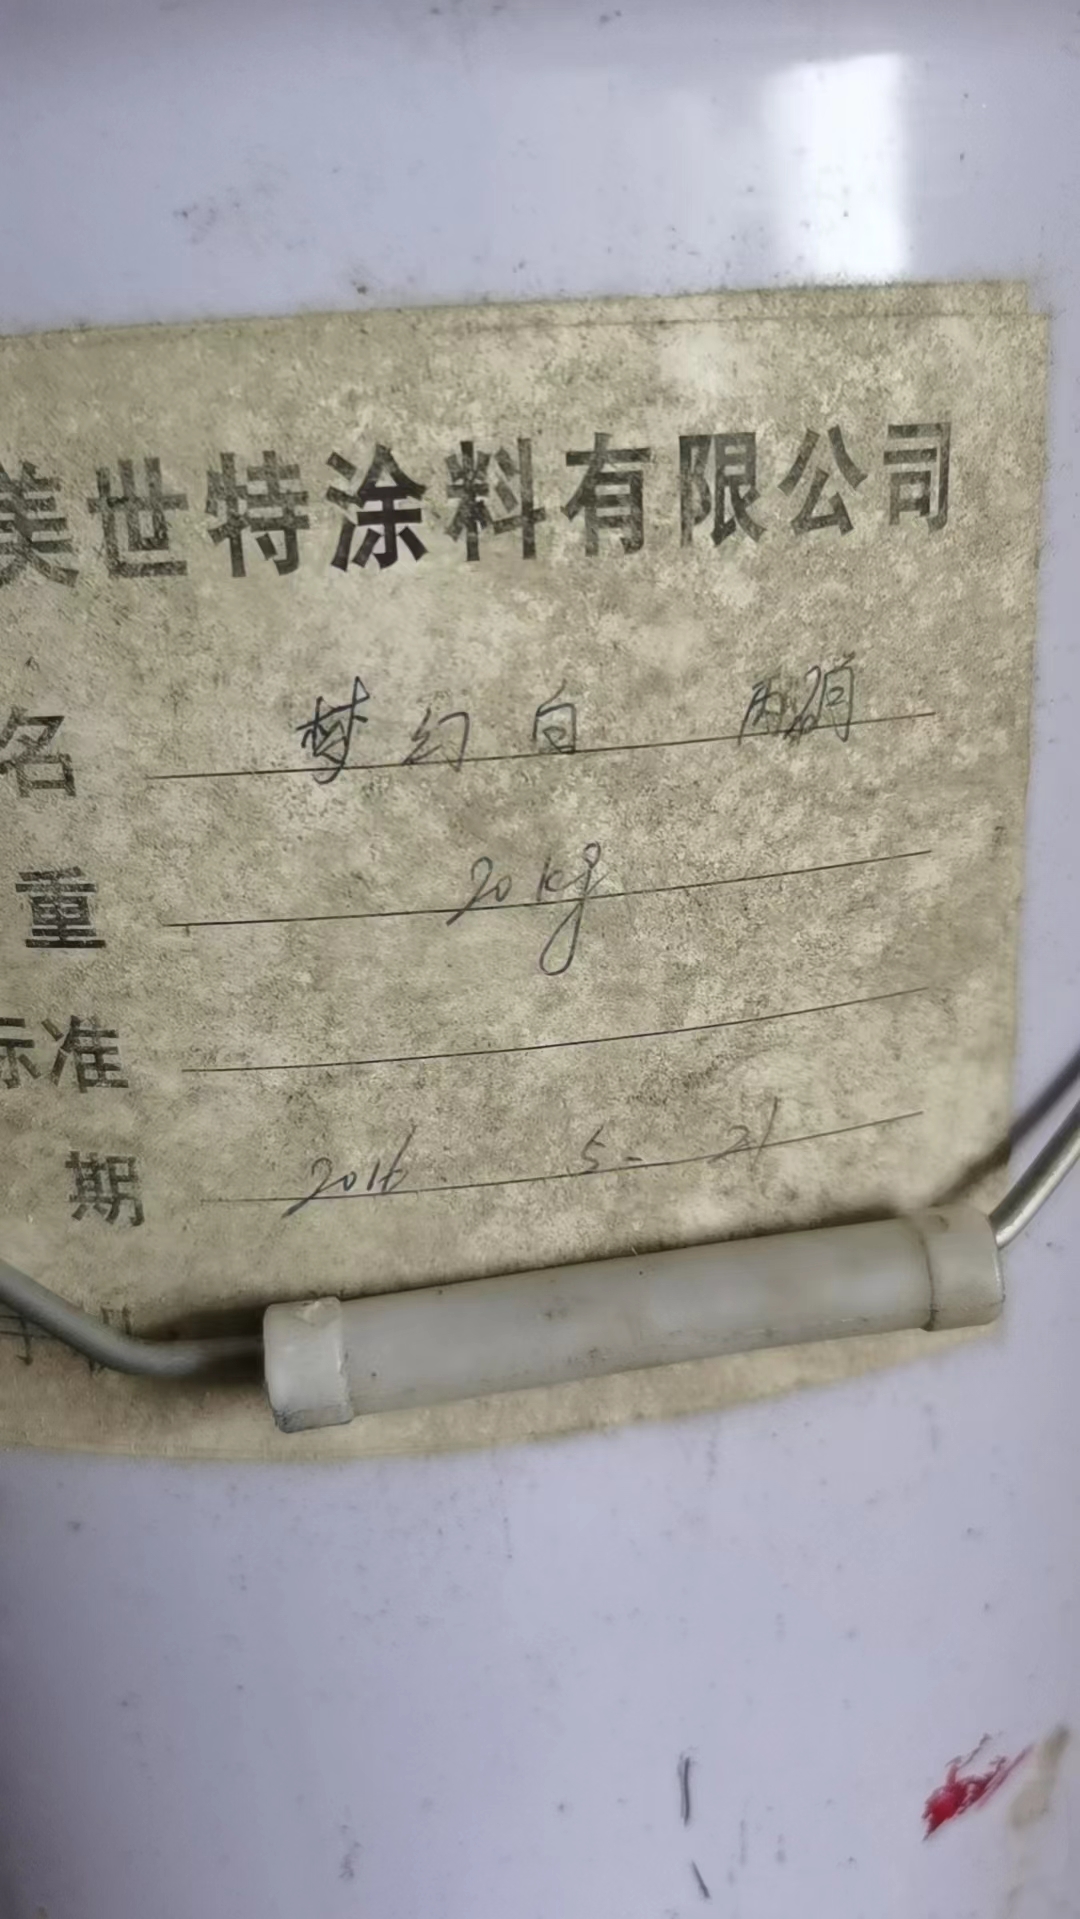 美世特涂料有限公司
名 梦幻白
重 20kg
标准
期 2016. 5- 21